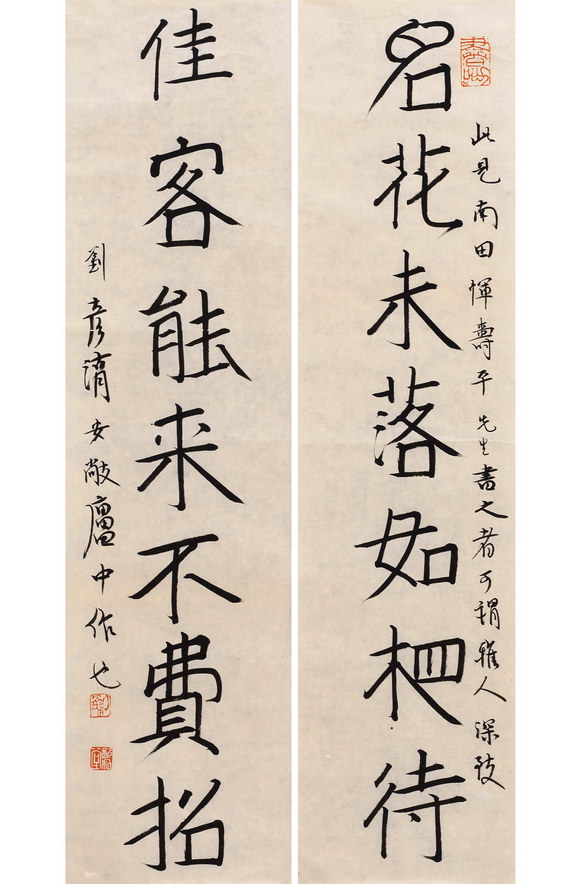 名花未落如相待
此見南田惲壽平先生書之者可謂雅人深致
佳客能来不費招
劉彦湖安敞廬中作也